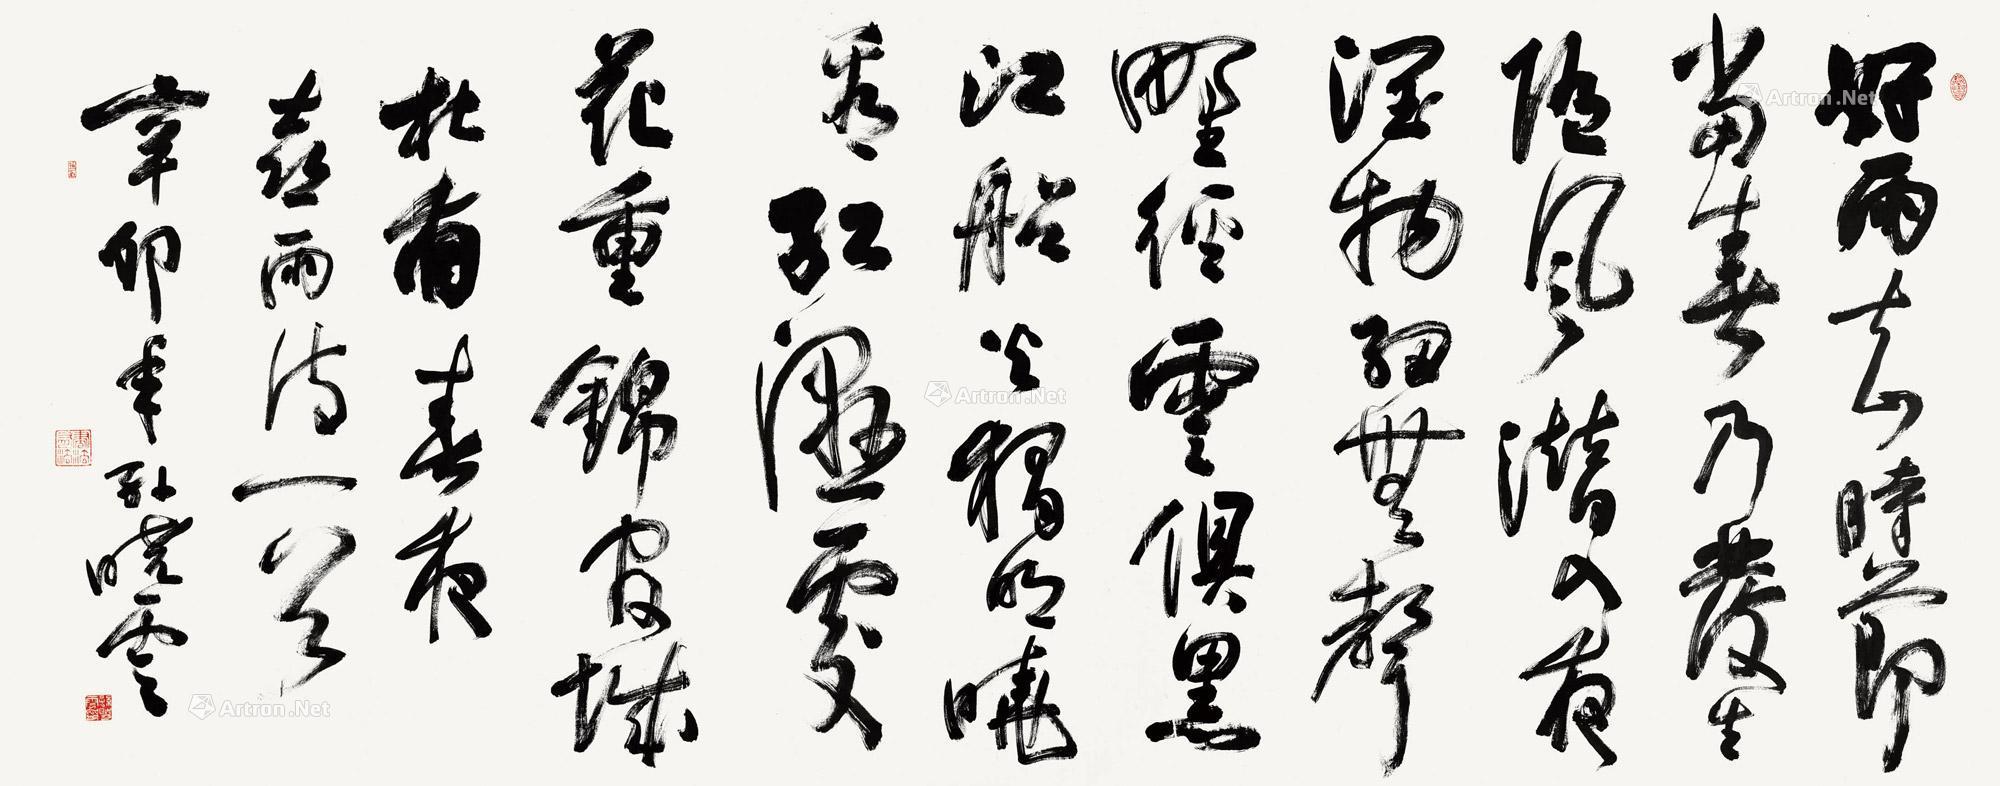 好雨知時節
當春乃發生
隨風潛入夜
潤物細無聲
野徑雲俱黑
江船火獨明曉
看紅濕處
花重錦官城
杜甫春夜
喜雨詩一首
辛卯年孫曉雲
Artron.Net
Artron.Net
Artron.Net